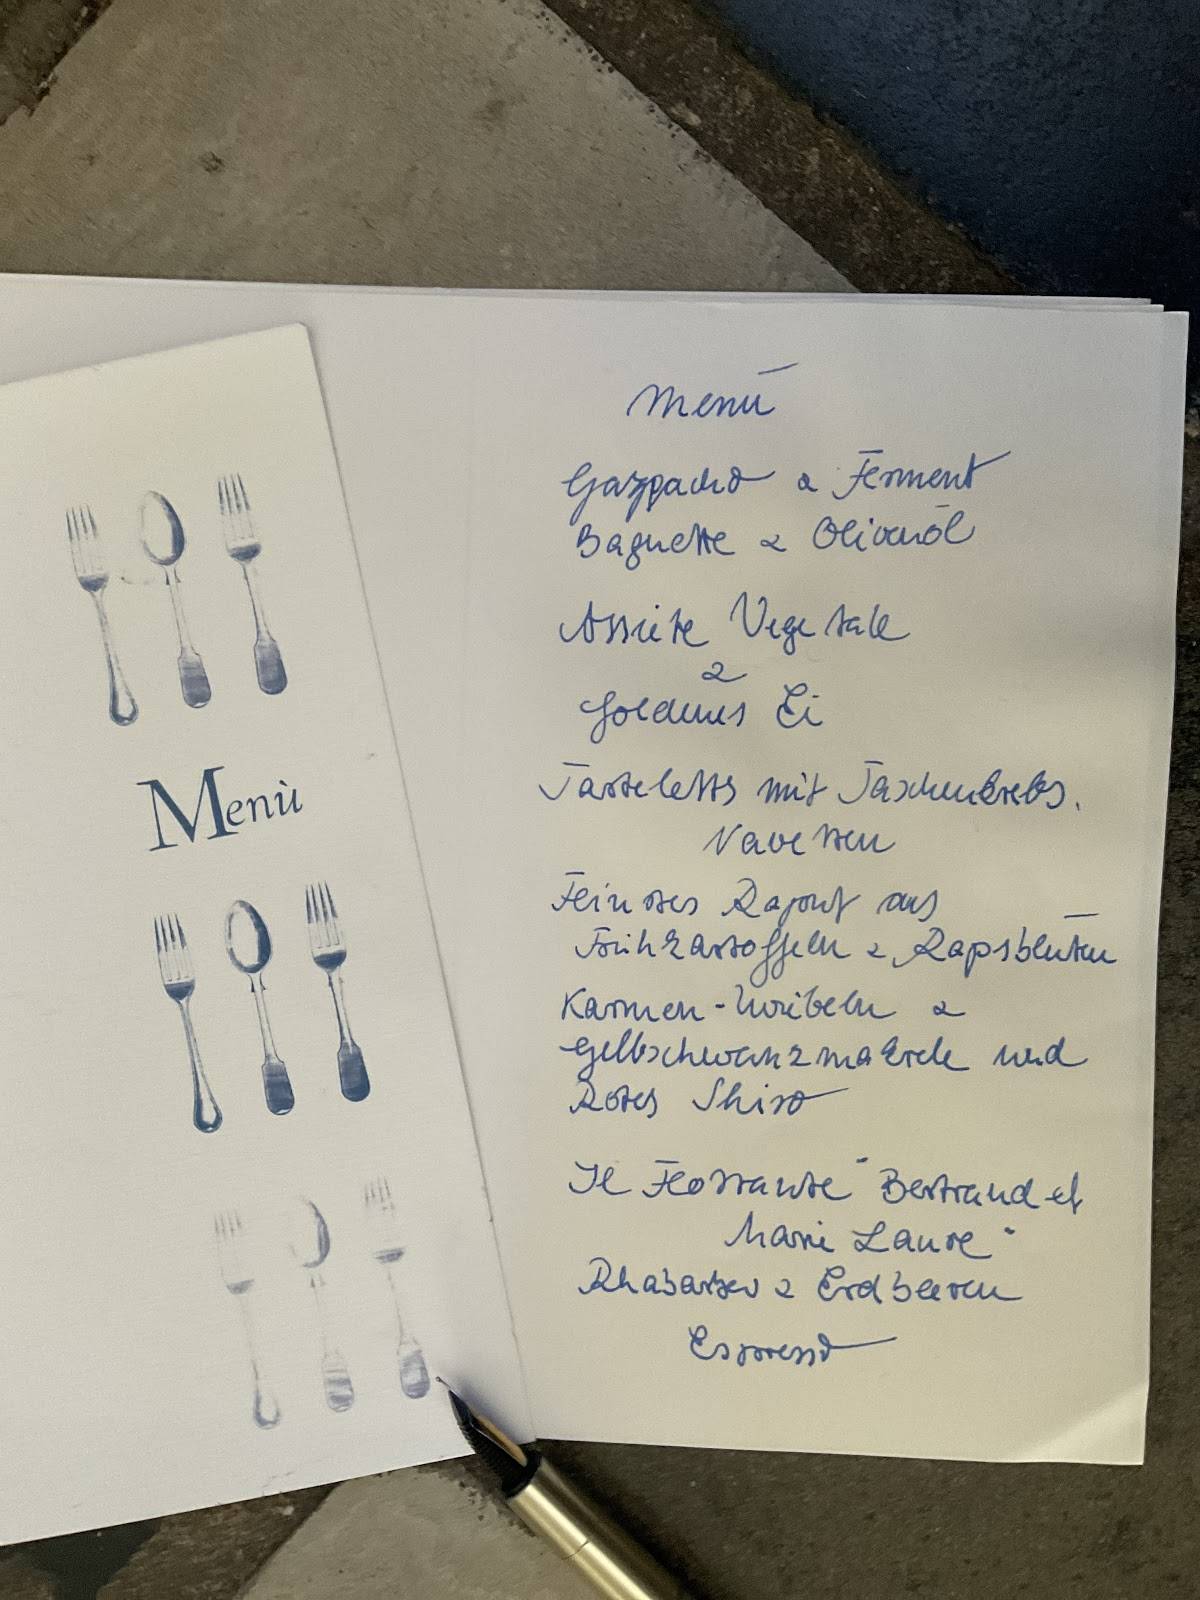 Menù
Menü
Gazpacho & Ferment
Baguette & Olivenöl
Assiete Vegetale
&
Goldenes Ei
Tartelettes mit Taschenkrebs.
Navetten
Ragout aus
Frühkartoffeln & Rapsblüten
Karmen-Zwibeln &
Gelbschwanzmakrele und
Rotes Shiso
Il Flottante "Bertrand et
Marie Laure"
Rhabarber & Erdbeeren
Espresso